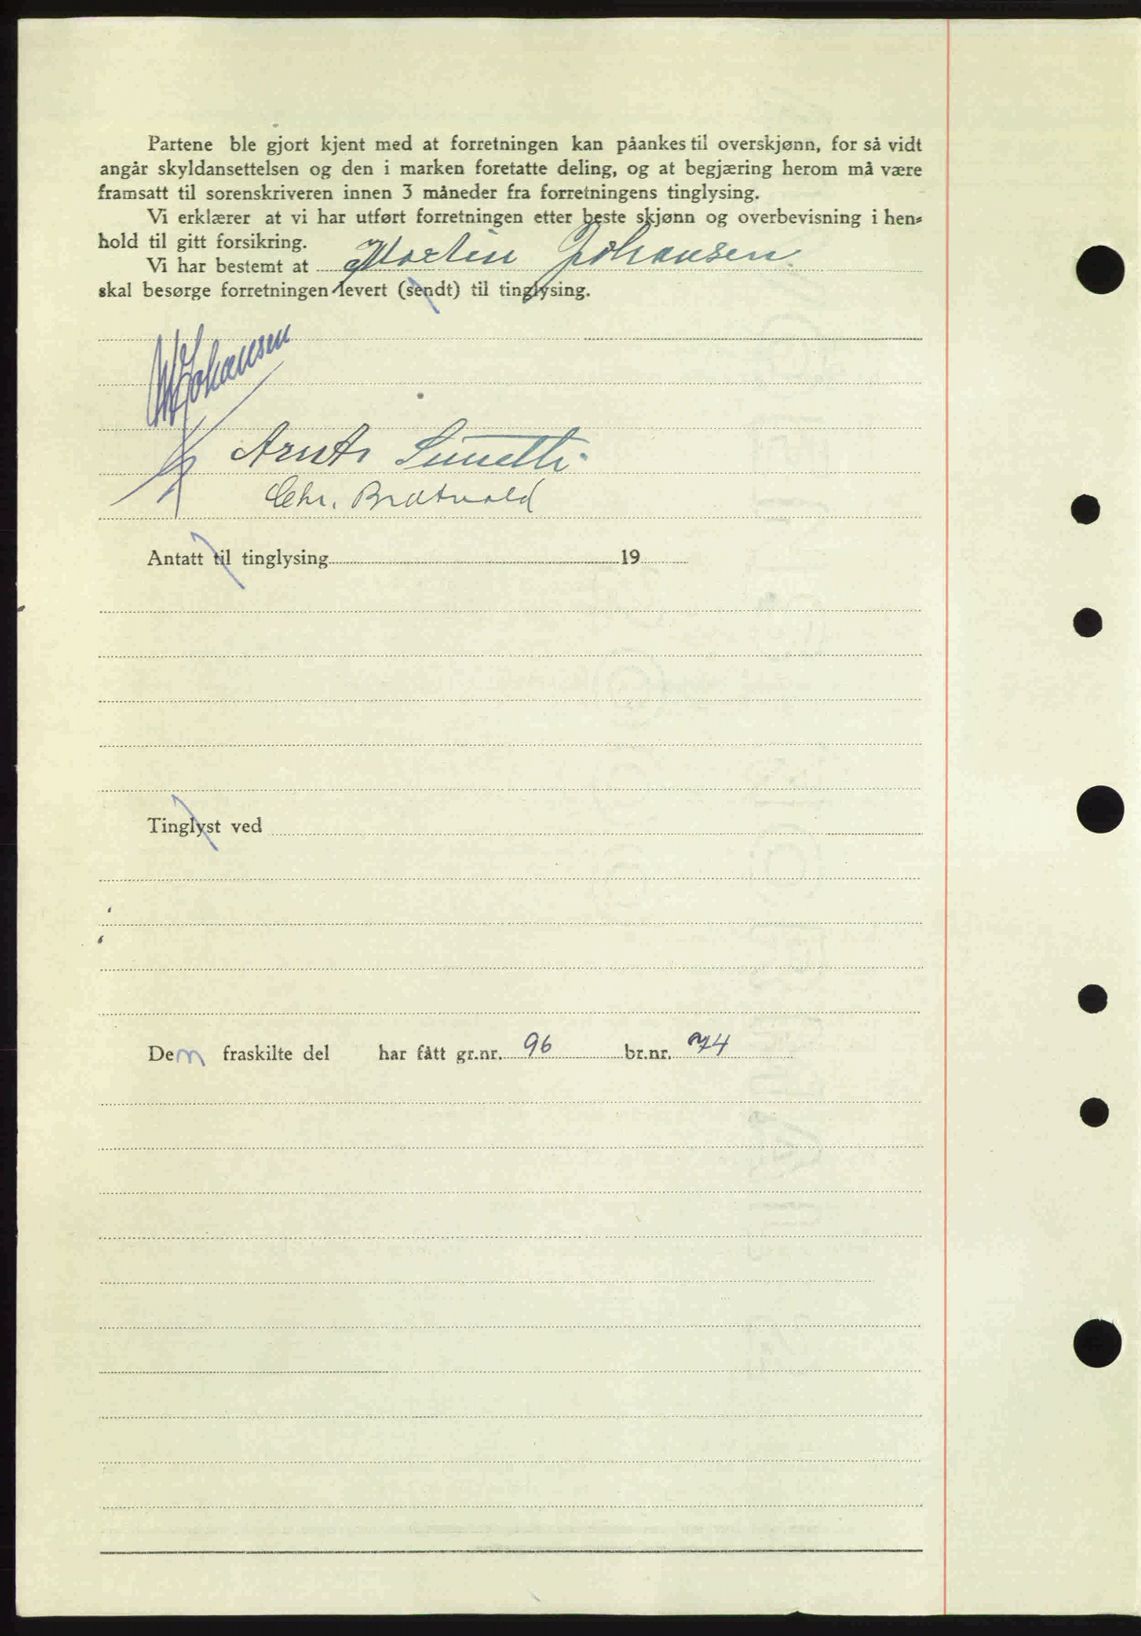 Partene ble gjort kjent med at forretningen kan påankes til overskjønn, for så vidt
angår skyldansettelsen og den i marken foretatte deling, og at begjæring herom må være
framsatt til sorenskriveren innen 3 måneder fra forretningens tinglysing.
Vi erklærer at vi har utført forretningen etter beste skjønn og overbevisning i hen-
hold til gitt forsikring.
Vi har bestemt at Martin Johansen
skal besørge forretningen levert (sendt) til tinglysing.
M Johansen
Arnts
Chr. Bratvold
Antatt til tinglysing 19
Tinglyst ved
Den fraskilte del har fått gr.nr. 96 br.nr. 74